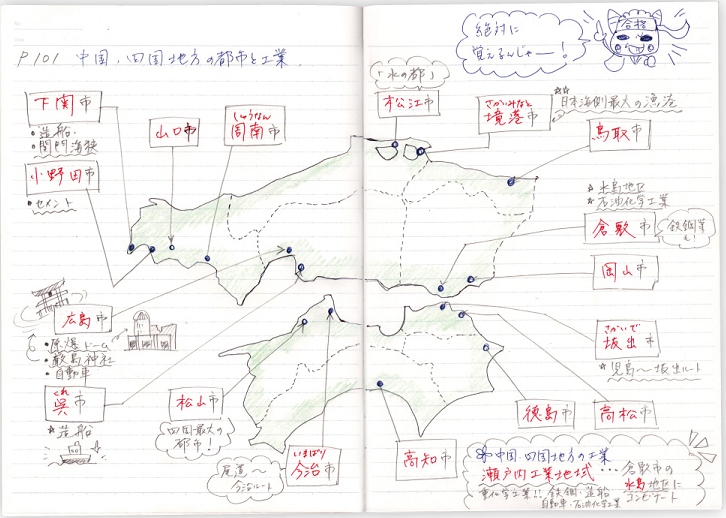 P101 中国、四国地方の都市と工業
絶対に
覚えるんじゃー!
合格
下関市
・造船
・関門海峡
山口市
しゅうなん
周南市
「水の都」
松江市
さかいみなと
境港市
☆☆
日本海側最大の漁港
鳥取市
小野田市
・セメント
☆水島地区
☆石油化学工業
倉敷市
鉄鋼業
も!
岡山市
広島市
・原爆ドーム
・厳島神社
・自動車
くれ
呉市
☆造船
松山市
四国最大の
都市!
尾道〜
今治ルート
いまばり
今治市
さかいで
坂出市
☆児島〜坂出ルート
徳島市
高松市
高知市
中国、四国地方の工業
瀬戸内工業地域…倉敷市の
水島地区に
コンビナート
重化学工業!!鉄鋼・造船
自動車・石油化学工業